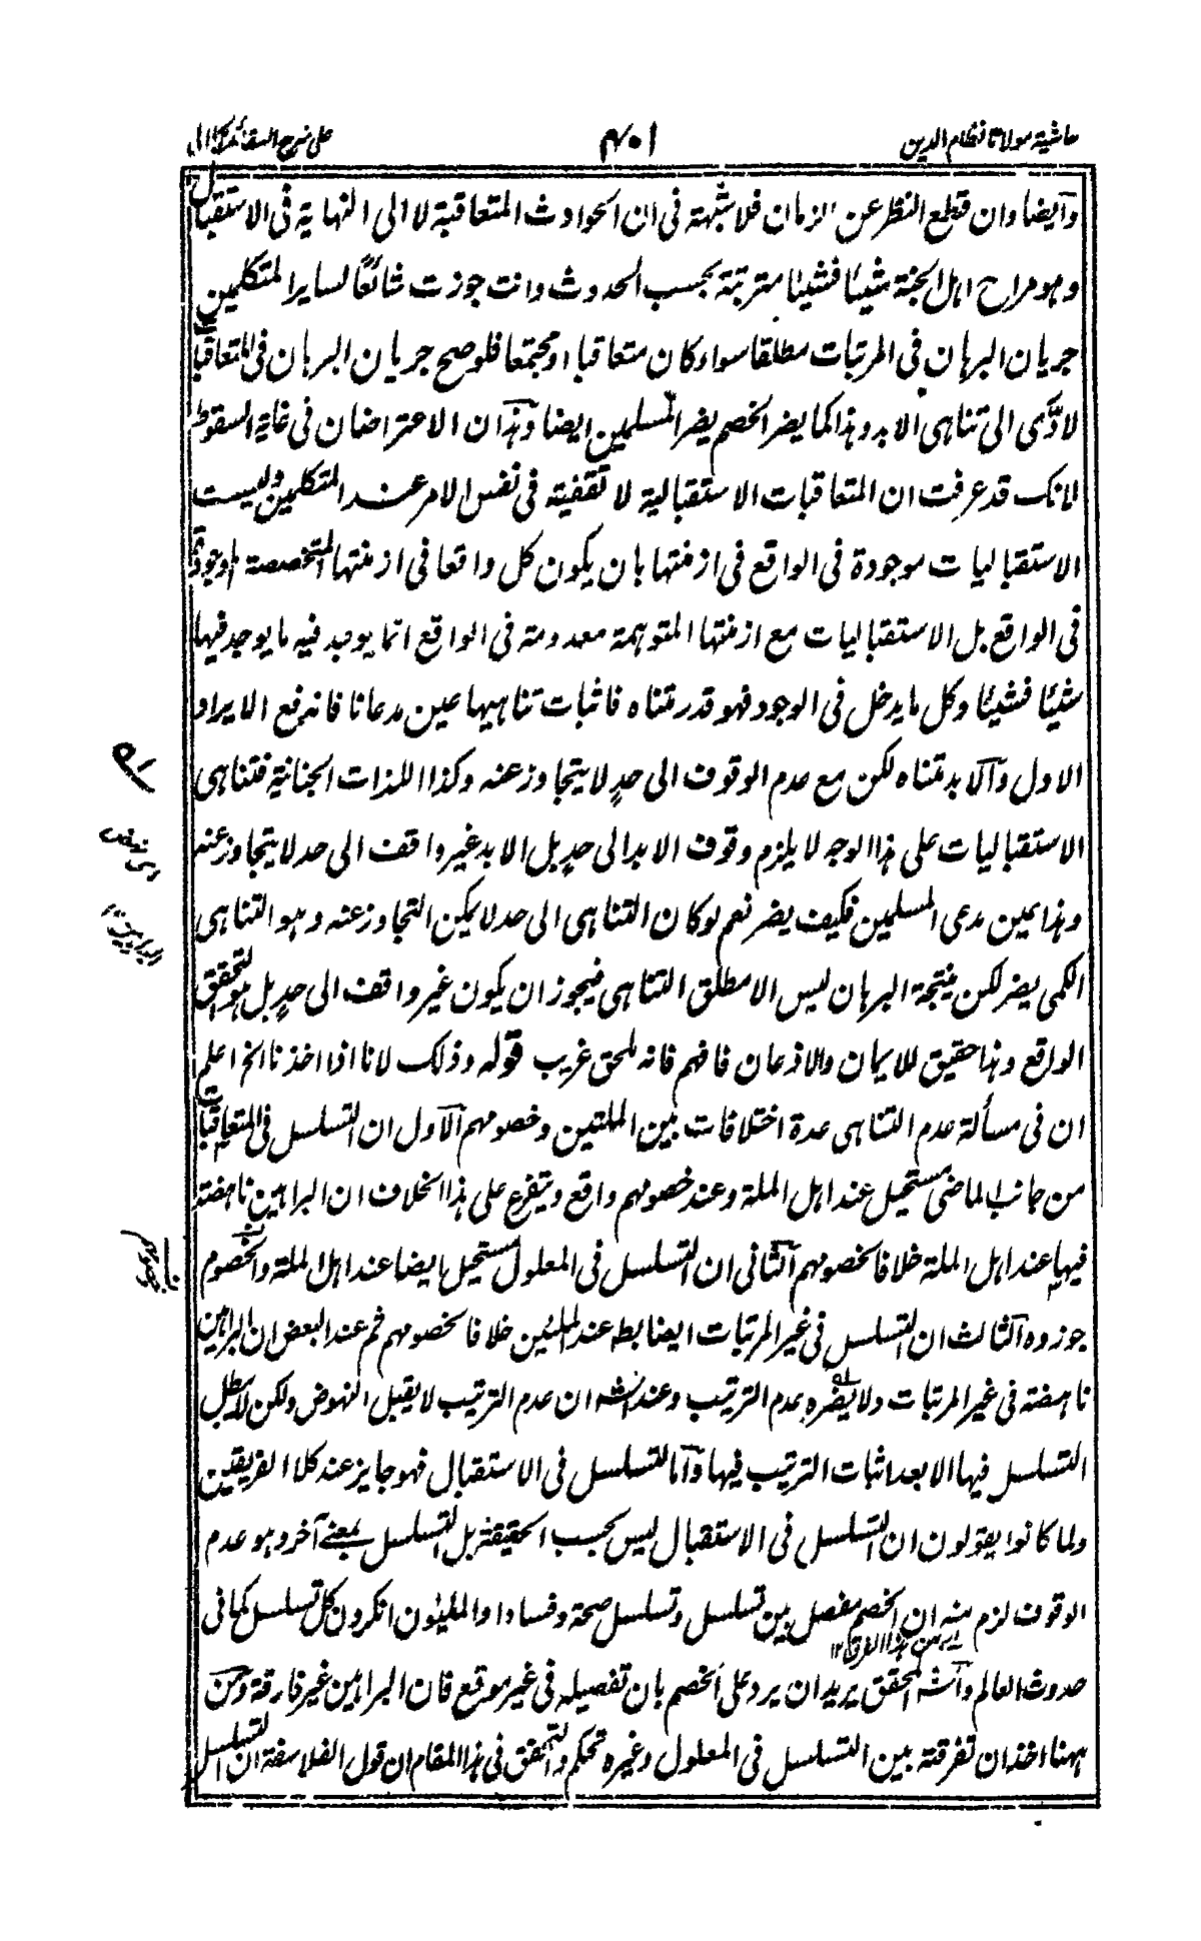 حاشية مولانا نظام الدين
١٠٤
على شرح العقائد الجلالى
وأيضا وان قطع النظر عن الزمان فلا شبهة فى ان الحوادث المتعاقبة لا الى النهاية فى الاستقبال
وهو مراح اهل الجنة شيئا فشيئا مترتبة بحسب الحدوث وانت جوزت شائعا لساير المتكلمين
جريان البرهان فى المرتبات مطلقا سواء كان متعاقبا او مجتمعا فلو صح جريان البرهان فى المتعاقبات
لادّى الى تناهى الابد وهذا كما يضر الخصم يضر المسلمين ايضا وهذان الاعتراضان فى غاية السقوط
لانك قد عرفت ان المتعاقبات الاستقبالية لا تقفية فى نفس الامر عند المتكلمين وليست
الاستقباليات موجودة فى الواقع فى ازمنتها بان يكون كل واقعا فى ازمنتها المتخصصة
فى الواقع بل الاستقباليات مع ازمنتها المتوهمة معدومة فى الواقع انما يوجد فيه ما يوجد فيها
شيئا فشيئا وكل ما يدخل فى الوجود فهو قدر متناه فاثبات تناهيها عين مدعانا فاندفع الايراد
الاول والابد متناه لكن مع عدم الوقوف الى حدٍ لا يتجاوز عنه وكذا اللذات الجنانية فتناهى
الاستقباليات على هذا الوجه لا يلزم وقوف الابد الى حدٍ بل الابد غير واقف الى حد لا يتجاوز عنه
وهذا يمين مدعى المسلمين فكيف يضر نعم لو كان التناهى الى حد لا يمكن التجاوز عنه وهو التناهى
الكمى يضر لكن نتيجة البرهان ليس الا مطلق التناهى فيجوز ان يكون غير واقف الى حدٍ بل هو المتحقق
الواقع وهذا حقيق للايمان والاذعان فافهم فانه لحق غريب قوله وذلك لانا اذا اخذنا الخ اعلم
ان فى مسألة عدم التناهى عدة اختلافات بين المليين وخصومهم الاول ان التسلسل فى المتعاقبات
من جانب الماضى مستحيل عند اهل الملة وعند خصومهم واقع ويتفرع على هذا الخلاف ان البراهين ناهضة
فيها عند اهل الملة خلافا لخصومهم الثانى ان التسلسل فى المعلول مستحيل ايضا عند اهل الملة والخصوم
جوزوه الثالث ان التسلسل فى غير المرتبات ايضا بط عند المليين خلافا لخصومهم ثم عند البعض ان البراهين
ناهضة فى غير المرتبات ولا يضره عدم الترتيب وعند الشه ان عدم الترتيب لا يقبل النهوض ولكن لا يبطل
التسلسل فيها الا بعد اثبات الترتيب فيها وأما التسلسل فى الاستقبال فهو جايز عند كلا الفريقين
ولما كانوا يقولون ان التسلسل فى الاستقبال ليس بحسب الحقيقة بل التسلسل بمعنى آخر وهو عدم
الوقوف لزم منه ان الخصم مفصل بين تسلسل وتسلسل صحة وفسادا والمليون انكرون كل تسلسل كما فى
حدوث العالم والشه المحقق يريد ان يرد على الخصم بان تفصيله فى غير موقع فان البراهين غير فارقة ومن
ههنا اخذ ان تفرقة بين التسلسل فى المعلول وغيره تحكم والتحقق فى هذا المقام ان قول الفلاسفة ان التسلسل